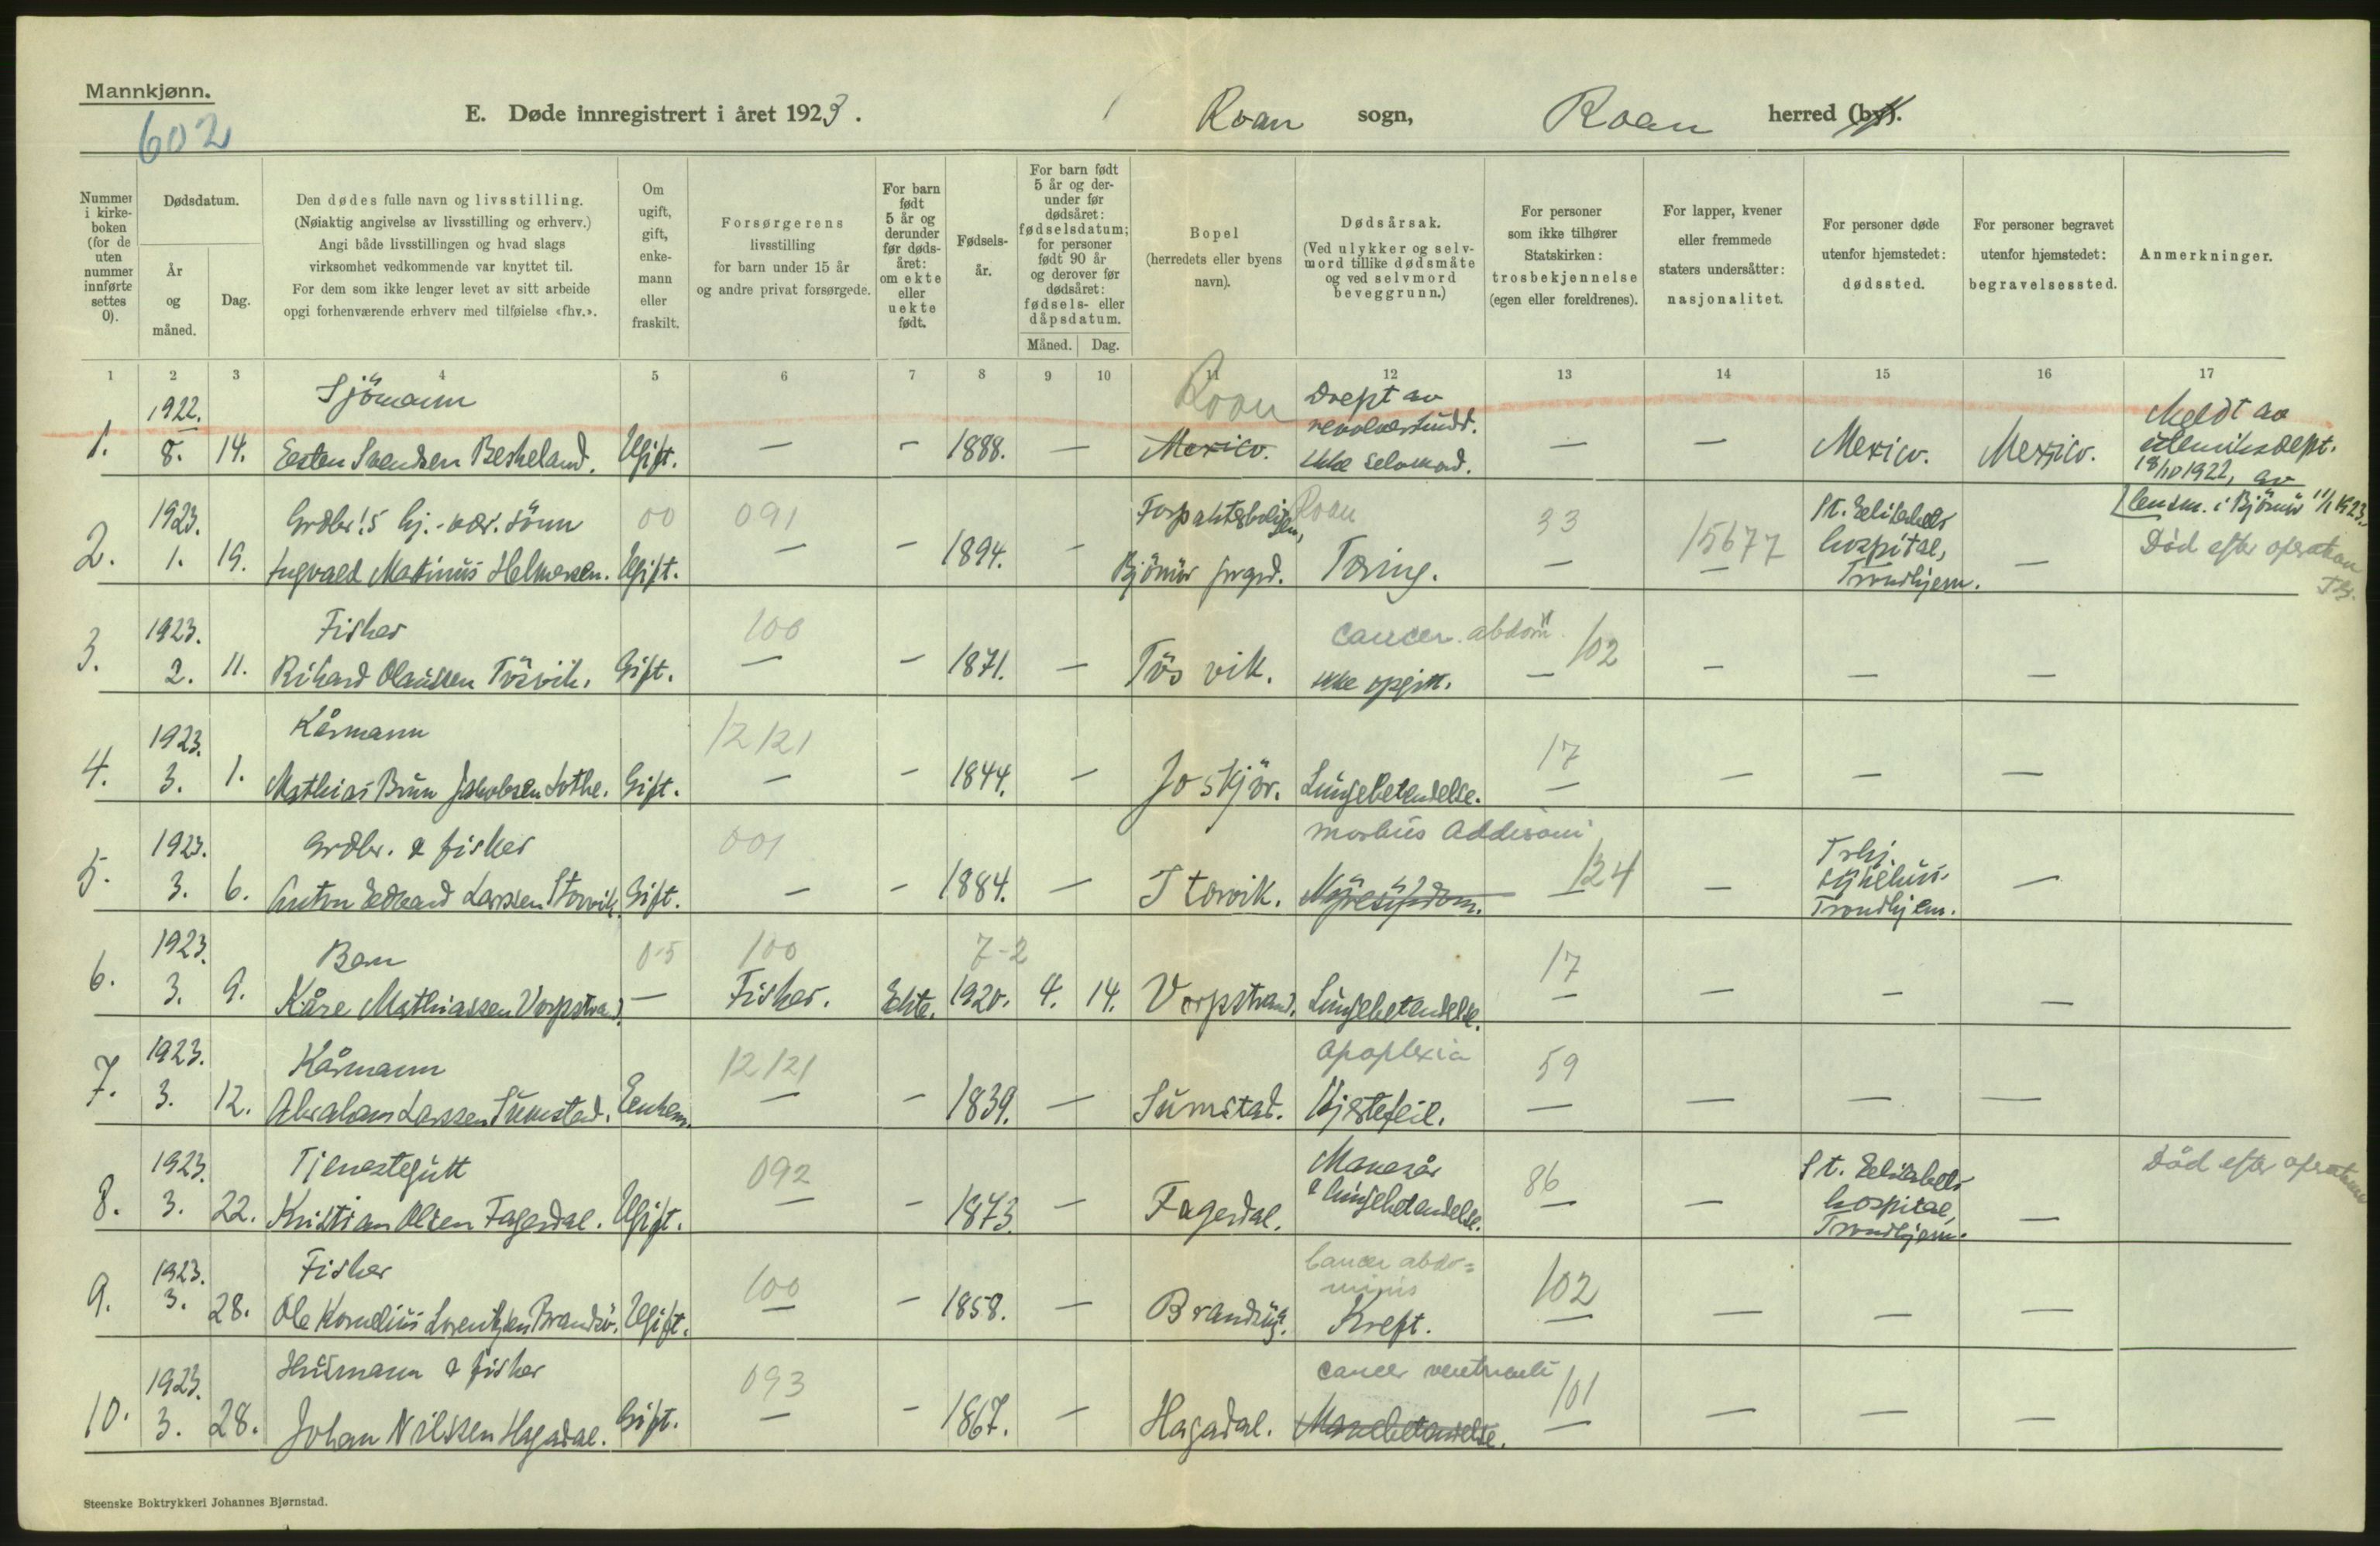 Mannkjønn.
602
E. Døde innregistrert i året 1923.
Roan sogn, Roan herred (by).
Nummer i kirke- boken (for de uten nummer innførte settes 0).
Dødsdatum.
År og måned.
Dag.
Den dødes fulle navn og livsstilling.
(Nøiaktig angivelse av livsstilling og erhverv.)
Angi både livsstillingen og hvad slags
virksomhet vedkommende var knyttet til.
For dem som ikke lenger levet av sitt arbeide
opgi forhenværende erhverv med tilføielse «fhv.».
Om ugift, gift, enke- mann eller fraskilt.
Forsørgerens
livsstilling
for barn under 15 år
og andre privat forsørgede.
For barn født 5 år og derunder før døds- året: om ekte eller uekte født.
Fødsels- år.
For barn født 5 år og der- under før dødsåret: fødselsdatum; for personer født 90 år og derover før dødsåret: fødsels- eller dåpsdatum.
Måned. Dag.
Bopel
(herredets eller byens
navn).
Dødsårsak.
(Ved ulykker og selv-
mord tillike dødsmåte
og ved selvmord
beveggrunn.)
For personer
som ikke tilhører
Statskirken:
trosbekjennelse
(egen eller foreldrenes).
For lapper, kvener
eller fremmede
staters undersåtter:
nasjonalitet.
For personer døde
utenfor hjemstedet:
dødssted.
For personer begravet
utenfor hjemstedet:
begravelsessted.
Anmerkninger.
1 2 3 4 5 6 7 8 9 10 11 12 13 14 15 16 17
1922. Sjömann Roan Drept av revolverskudd. Meldt av
1. 8. 14. Esten Svendsen Beskeland. Ugift. — — 1888. — Mexico. Ikke selvmord. — — Mexico. Mexico. utenriksdept.
18/10 1922, av
lensm. i Björnör 11/1 1923.
1923. Grdbr.s hj.-vær. sönn 00 091 Forpakterboligen, Roan 33 15677 St. Elisabeth
2. 1. 19. Ingvald Martinus Helmersen. Ugift. — — 1894. — Björnör prgrd. Tæring. — — hospital, Trondhjem. — Död efter operation
1923. Fisker 100 cancer abdom. 102
3. 2. 11. Rikard Olaussen Tösvik. Gift. — — 1871. — Tösvik. Ikke opgitt. — — — —
1923. Kårmann 12121 17
4. 3. 1. Mathias Brun Jakobsen Sothe. Gift. — — 1844. — Joskjör. Lungebetendelse. — — — —
1923. Grdbr. & fisker 001 morbus Addisoni 124 Trhj.
5. 3. 6. Anton Edvard Larssen Storvik. Gift. — — 1884. — Storvik. Nyresygdom. — — sykehus. Trondhjem. —
1923. Barn 0-5 100 7-2 17
6. 3. 9. Kåre Mathiassen Vorpstrand. — Fisker. Ekte. 1920. 4. 14. Vorpstrand. Lungebetendelse. — — — —
1923. Kårmann 12121 Apoplexia 59
7. 3. 12. Abraham Larssen Sumstad. Enkem. — — 1839. — Sumstad. Hjertefeil. — — — —
1923. Tjenestegutt 092 Mavesår 86 St. Elisabeth
8. 3. 22. Kristian Olsen Fagerdal. Ugift. — — 1873. — Fagerdal. & lungebetendelse. — — hospital, Trondhjem. — Död efter operation
1923. Fisker 100 Cancer abdo= minis 102
9. 3. 28. Ole Kornelius Lorentzen Brandsö. Ugift. — — 1858. — Kreft. — — — —
1923. Husmann & fisker 093 cancer ventriculi 101
10. 3. 28. Johan Nilssen Hagadal. Gift. — — 1867. — Hagadal. Mavebetendelse. — — — —
Steenske Boktrykkeri Johannes Bjørnstad.